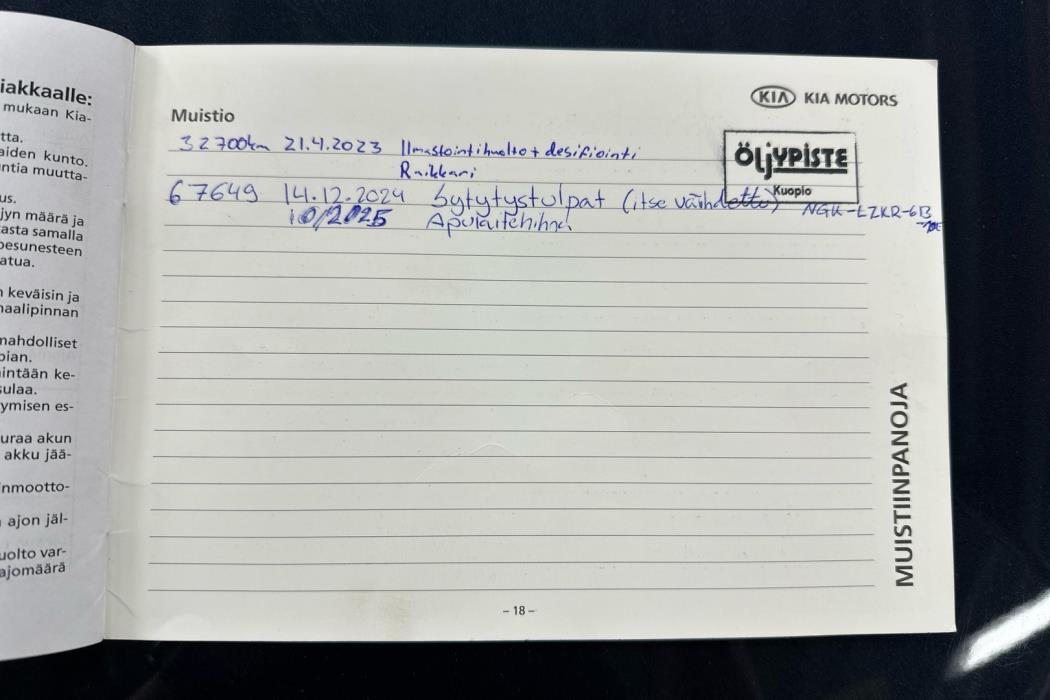 iakkaalle:
mukaan Kia-
tta.
aiden kunto.
ntia muutta-
us.
jyn määrä ja
tasta samalla
pesunesteen
atua.
n keväisin ja
maalipinnan
mahdolliset
pian.
hintään ke-
sulaa.
ymisen es-
uraa akun
akku jää-
nmootto-
ajon jäl-
uolto var-
ajomäärä
KIA KIA MOTORS
Muistio
32700km 21.4.2023 Ilmastointihuolto + desifiointi
Raikkari
ÖLJYPISTE
Kuopio
67649 14.12.2024 Sytytystulpat (itse vaihdettu) NGK-LZKR-6B
10/2025 Apulaitehihna
MUISTIINPANOJA
– 18 –